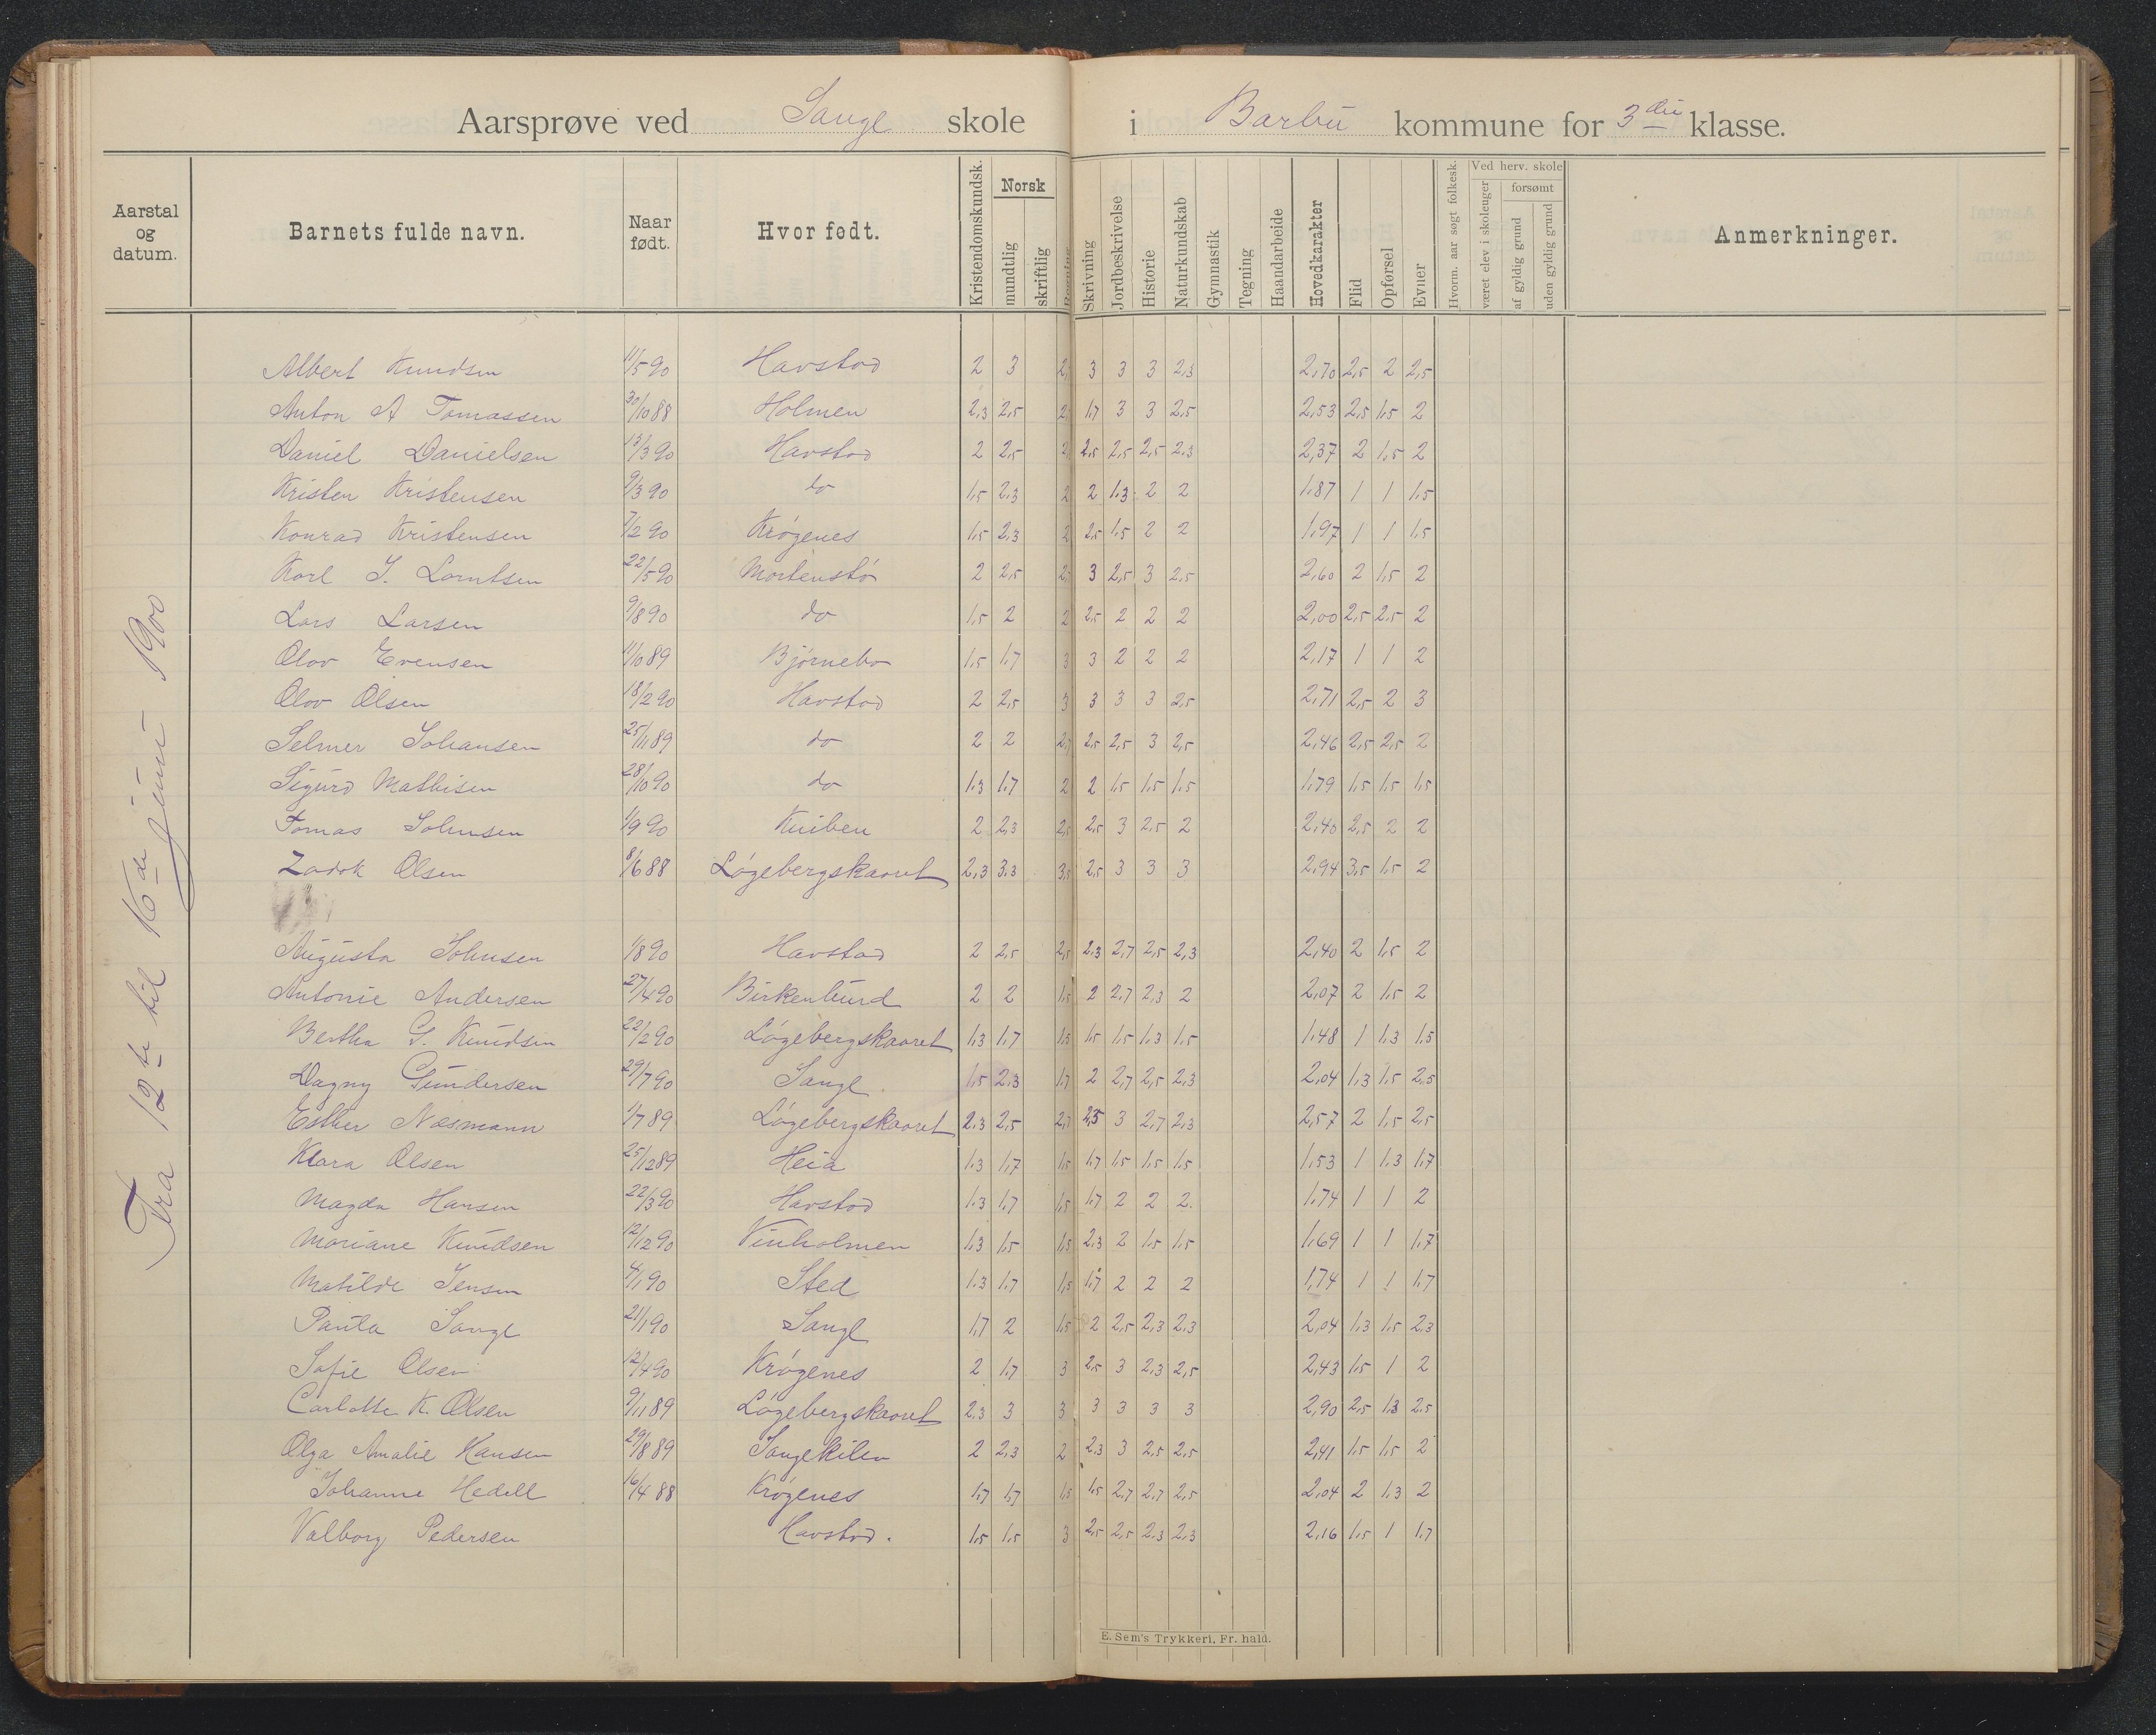 Aarsprøve ved Sangl skole i Barbu kommune for 3die klasse.
Aarstal og datum. Barnets fulde navn. Naar født. Hvor født. Kristendomskundsk. Norsk mundtlig skriftlig Regning Skrivning Jordbeskrivelse Historie Naturkundskab Gymnastik Tegning Haandarbeide Hovedkarakter Flid Opførsel Evner Hvorm. aar søgt folkesk. Ved herv. skole været elev i skoleuger forsømt af gyldig grund uden gyldig grund Anmerkninger.
Fra 12te til 16de juni 1900
Albert Knudsen 11/5 90 Havstad 2 3 2, 3 3 3 2,3 2,70 2,5 2 2,5
Anton A Tomassen 30/10 88 Holmen 2,3 2,5 2, 1,7 3 3 2,5 2,53 2,5 1,5 2
Daniel Danielsen 13/3 90 Havstad 2 2,5 2, 2,5 2,5 2,5 2,3 2,37 2 1,5 2
Kristen Kristensen 9/3 90 do 1,5 2,3 2 2 1,3 2 2 1,87 1 1 1,5
Konrad Kristensen 7/2 90 Krøgenes 1,5 2,3 2 2,5 1,5 2 2 1,97 1 1 1,5
Karl J. Larntsen 22/5 90 Mortenstø 2 2,5 2, 3 2,5 3 2,5 2,60 2 1,5 2
Lars Larsen 9/8 90 do 1,5 2 2 2,5 2 2 2 2,00 2,5 2,5 2
Olav Evensen 11/10 89 Bjørnebo 1,5 1,7 3 3 2 2 2 2,17 1 1 2
Olav Olsen 18/2 90 Havstad 2 2,5 3 3 3 3 2,5 2,71 2,5 2 3
Selmer Johansen 25/11 89 do 2 2 2, 2,5 2,5 3 2,5 2,46 2,5 2,5 2
Sigurd Mathisen 28/10 90 do 1,3 1,7 2 2 1,5 1,5 1,5 1,79 1,5 1,5 1,5
Tomas Johnsen 1/9 90 Kniben 2 2,3 2,5 2,5 3 2,5 2 2,40 2,5 2 2
Zadok Olsen 8/6 88 Løgebergskaaret 2,3 3,3 3,5 2,5 3 3 3 2,94 3,5 1,5 2
Augusta Johnsen 1/8 90 Havstad 2 2,5 2,5 2,3 2,7 2,5 2,3 2,40 2 1,5 2
Antonie Andersen 27/4 90 Birkenlund 2 2 1,5 2 2,7 2,3 2 2,07 2 1,5 2
Bertha G. Knudsen 22/2 90 Løgebergskaaret 1,3 1,7 1,5 1,5 1,5 1,3 1,5 1,48 1 1,3 1,5
Dagny Gundersen 29/7 90 Sangl. 1,5 2,3 1,7 2 2,7 2,5 2,3 2,04 1,3 1,5 2,5
Esther Næsmann 1/7 89 Løgebergskaaret 2,3 2,5 2,7 2,5 3 2,7 2,3 2,57 2 1,5 2,5
Klara Olsen 25/12 89 Heia 1,3 1,7 1,5 1,7 1,5 1,5 1,5 1,53 1 1,3 1,7
Magda Hansen 22/3 90 Havstad 1,3 1,7 1,5 1,7 2 2 2. 1,74 1 1 2
Mariane Knudsen 12/12 90 Vinholmen 1,3 1,5 1,5 2,3 2 1,5 1,5 1,69 1 1 1,7
Matilde Jensen 4/1 90 Sted 1,3 1,7 1,5 1,7 2 2 2 1,74 1 1 1,7
Paula Sangl 21/1 90 Sangl 1,7 2 1,5 2 2,5 2,3 2,3 2,04 1,3 1,5 2,3
Sofie Olsen 12/4 90 Krøgenes 2 1,7 3 2,5 3 2,3 2,5 2,43 1,5 1 2
Carlotte K. Olsen 9/11 89 Løgebergskaaret 2,3 3 3 3 3 3 3 2,90 2,5 1,3 2,5
Olga Amalie Hansen 29/8 89 Sanglkilen 2 2,3 2 2,3 3 2,5 2,5 2,41 1,5 1,5 2
Johanne Hedell 16/4 88 Krøgenes 1,7 1,7 1,5 1,5 2,7 2,7 2,5 2,04 2 1,3 2
Valborg Pedersen Havstad. 1,5 1,5 3 2,5 2,5 2,3 2,3 2,16 1,5 1 1,7
E. Sem's Trykkeri, Fr. hald.